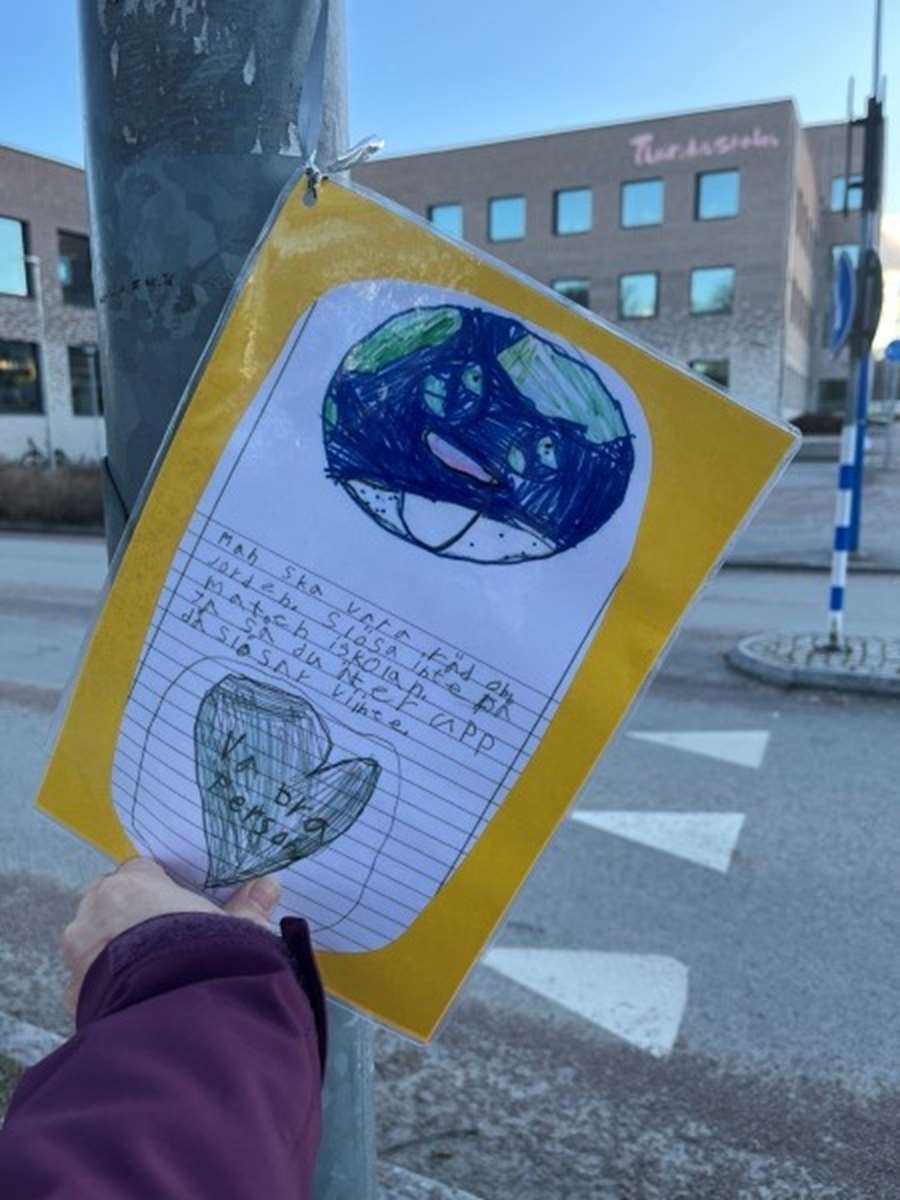 Man ska vara räd om
jorden. slösa inte på
mat och iskolan.
Ja så du äter upp
då slösar vi inte.
Va bra
person